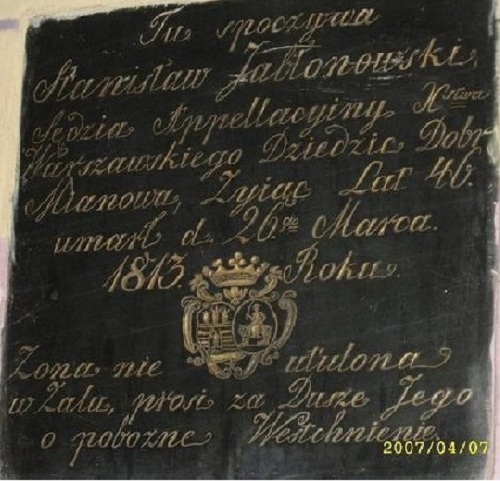 Tu spoczywa
Stanisław Jabłonowski,
Sędzia Appellacyiny Xstwa
Warszawskiego Dziedzic Dobr
Mianowa, Zyiąc Lat 46.
umarł d. 26go Marca.
1813. Roku.
Zona nie utulona
w Zalu, prosi za Dusze Jego
o pobozne Westchnienie
2007/04/07